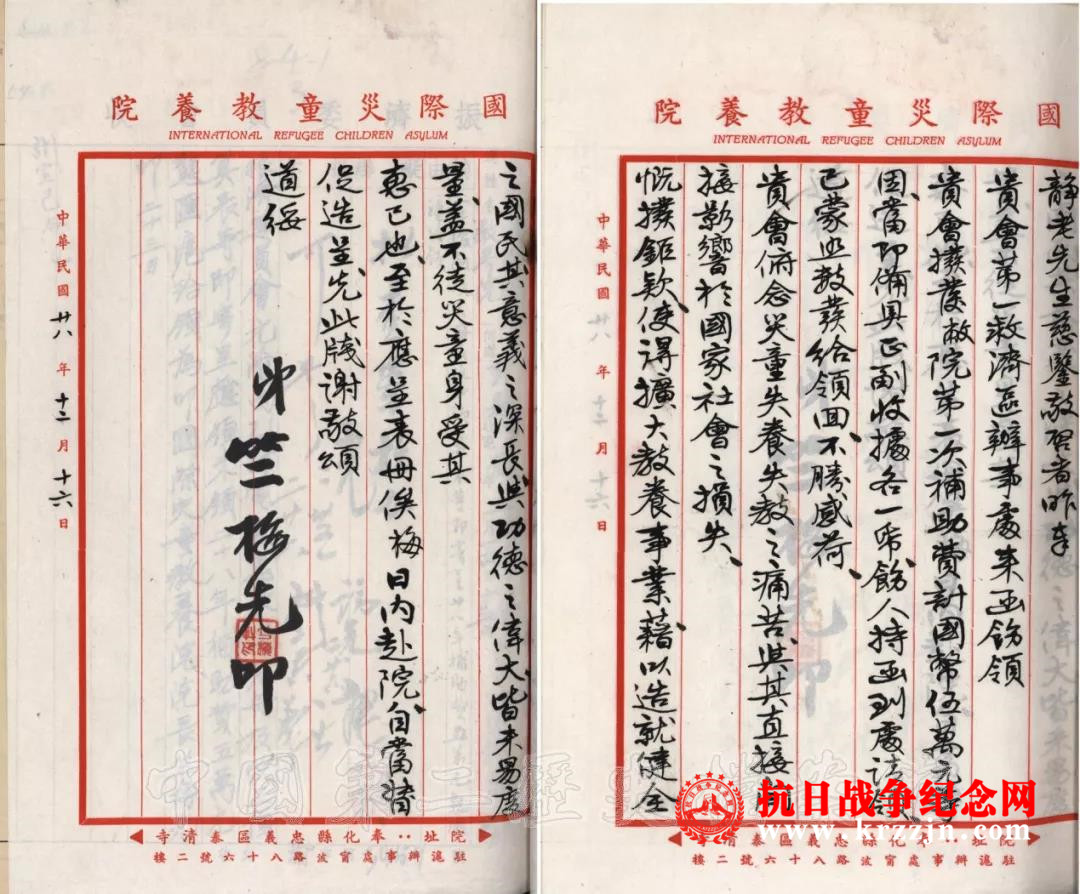 國際災童教養院
INTERNATIONAL REFUGEE CHILDREN ASYLUM
靜老先生慈鑒敬啓者昨奉
貴會第一救濟區辦事處來函飭領
貴會撥發敝院第一次補助費計國幣伍萬元等
因、當即備具正副收據各一帋、飭人持函到處請領、
已蒙照數發給領回、不勝感荷、
貴會俯念災童失養失教之痛苦、與其直接間
接影響於國家社會之損失、
慨撥鉅款、使得擴大教養事業、藉以造就健全
中華民國廿八年十二月十六日
院址：奉化縣忠義區泰清
駐滬辦事處甯波路八十六號二樓
國際災童教養院
INTERNATIONAL REFUGEE CHILDREN ASYLUM
之國民、其意義之深長與功德之偉大、皆未易度
量、蓋不徒災童身受其
惠已也、至於應呈表冊、俟梅日內赴院、自當督
促造呈、先此牋謝、敬頌
道綏
弟竺梅先叩
中華民國廿八年十二月十六日
院址：奉化縣忠義區泰清寺
駐滬辦事處甯波路八十六號二樓
中國第二歷史檔案館
抗日战争纪念网
www.krzzjn.com